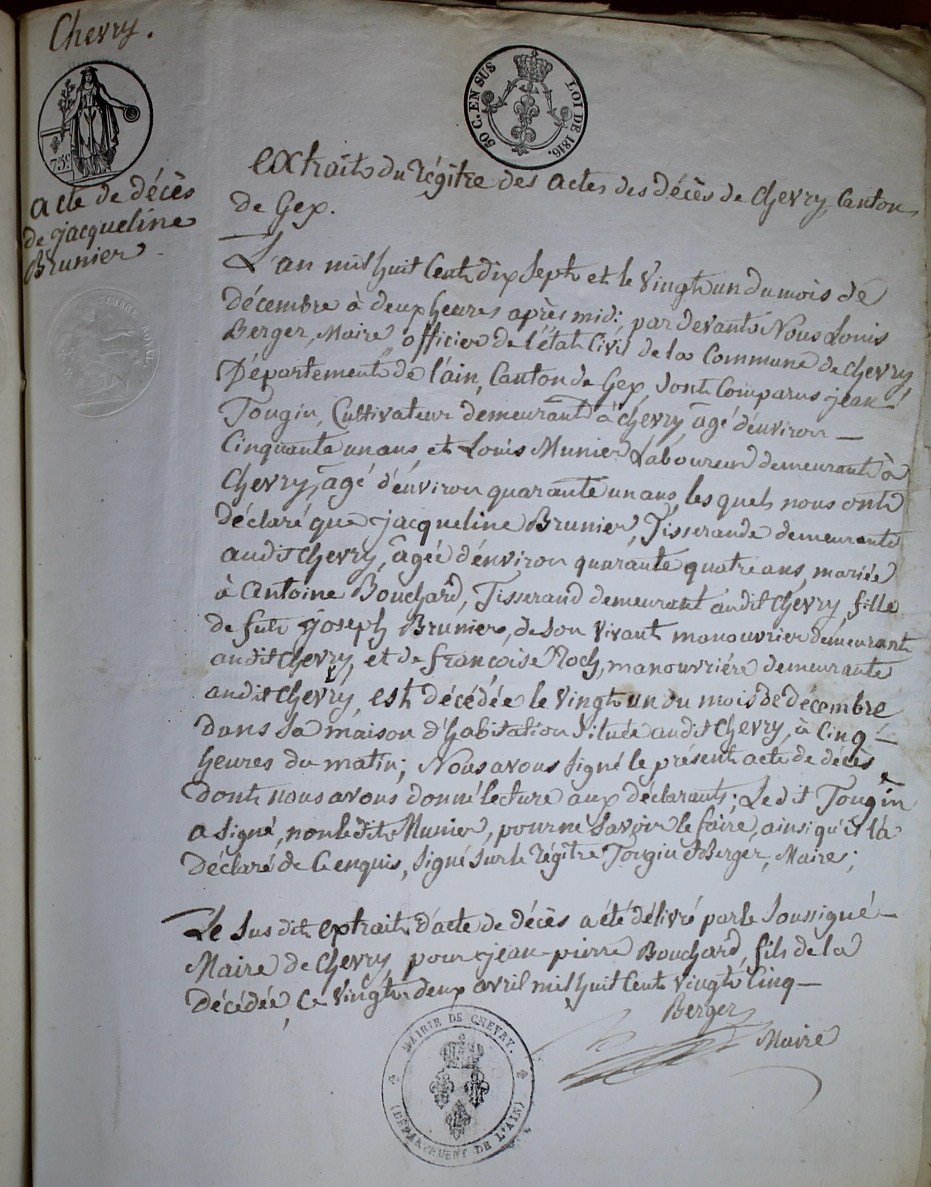 Chevry.
50 C. EN SUS LOI DE 1816.
75c
acte de décès
de jacqueline
Brunier.
TIMBRE ROYALE
extraits du régitre des actes des décès de Chevry, Canton
de Gex.
L'an mil huit Cent dix Sept et le Vingt un du mois de
décembre à deux heures après midi, par devant Nous Louis
Berger, Maire, officier de l'état Civil de la Commune de Chevry
Département de l'ain, Canton de Gex, sont Comparus jean
Tougin, Cultivateur demeurant à chevry agé d'environ —
Cinquante un ans et Louis Munier Laboureur demeurant à
Chevry, agé d'environ quarante un ans, les quels nous ont
déclaré que jacqueline Brunier, Tisserande demeurante
audit Chevry, agée d'environ quarante quatre ans, mariée
à Antoine Bouchard, Tisserand demeurant audit Chevry, fille
de fut joseph Brunier, de son vivant manouvrier demeurant
audit Chevry, et de françoise Roch, manouvrière demeurante
audit Chevry, est décédée le vingt un du mois de décembre
dans sa maison d'habitation Située audit Chevry, à Cinq —
heures du matin; Nous avons signé le présent acte de décès
dont nous avons donné lecture aux déclarants; Le dit Tougin
a signé, non ledit Munier, pour ne savoir le faire, ainsi qu'il l'a
déclaré de ce enquis, signé sur le régître Tougin & Berger, Maire;
Le Sus dit extrait d'acte de décès a été délivré par le Soussigné —
Maire de Chevry pour jean-pierre Bouchard, fils de la
décédée, Ce Vingt deux avril mil huit Cent Vingt Cinq —
Berger
Maire
MAIRIE DE CHEVRY.
(DÉPARTEMENT DE L'AIN)